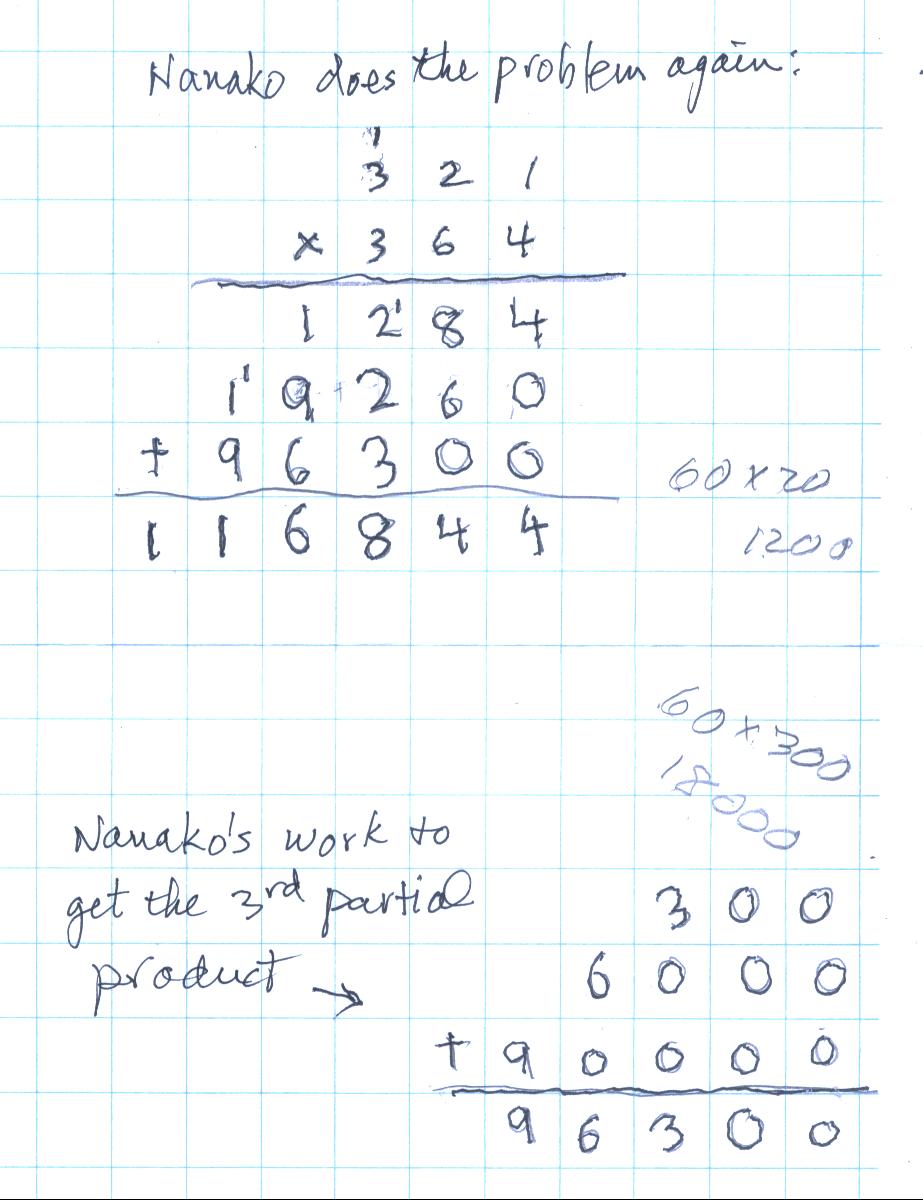 Nanako does the problem again:
1
3 2 1
x 3 6 4
1 2 1 8 4
1 1 9 2 6 0
+ 9 6 3 0 0
1 1 6 8 4 4
60 x 20
1200
60 x 300
18000
Nanako's work to
get the 3rd partial
product →
3 0 0
6 0 0 0
+ 9 0 0 0 0
9 6 3 0 0